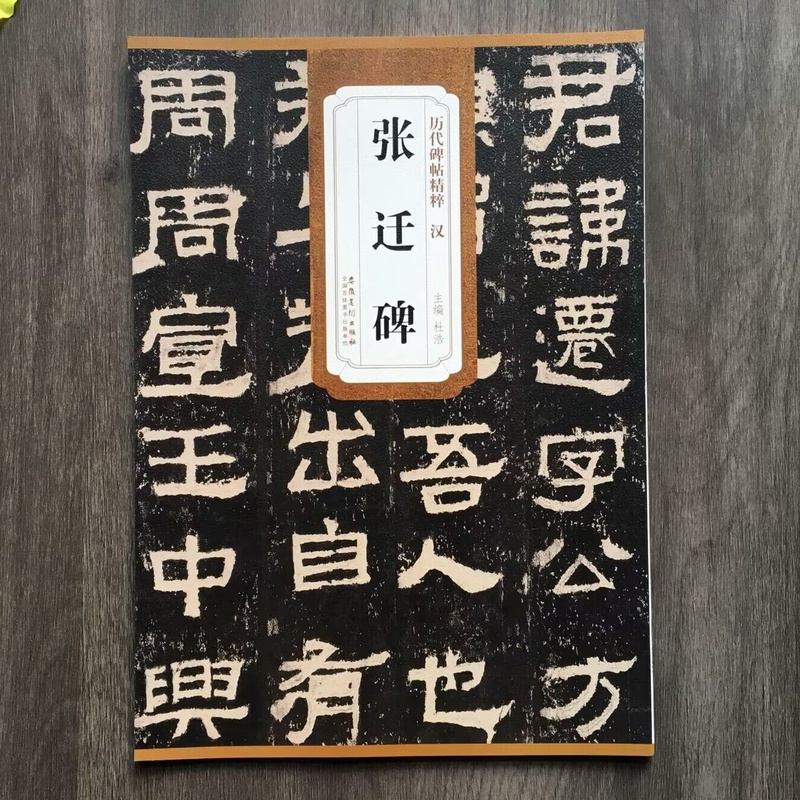 君諱遷字公方
吾人也
出自有
周周宣王中興
历代碑帖精粹 汉
主编 杜浩
张迁碑
安徽美术出版社
全国百佳图书出版单位